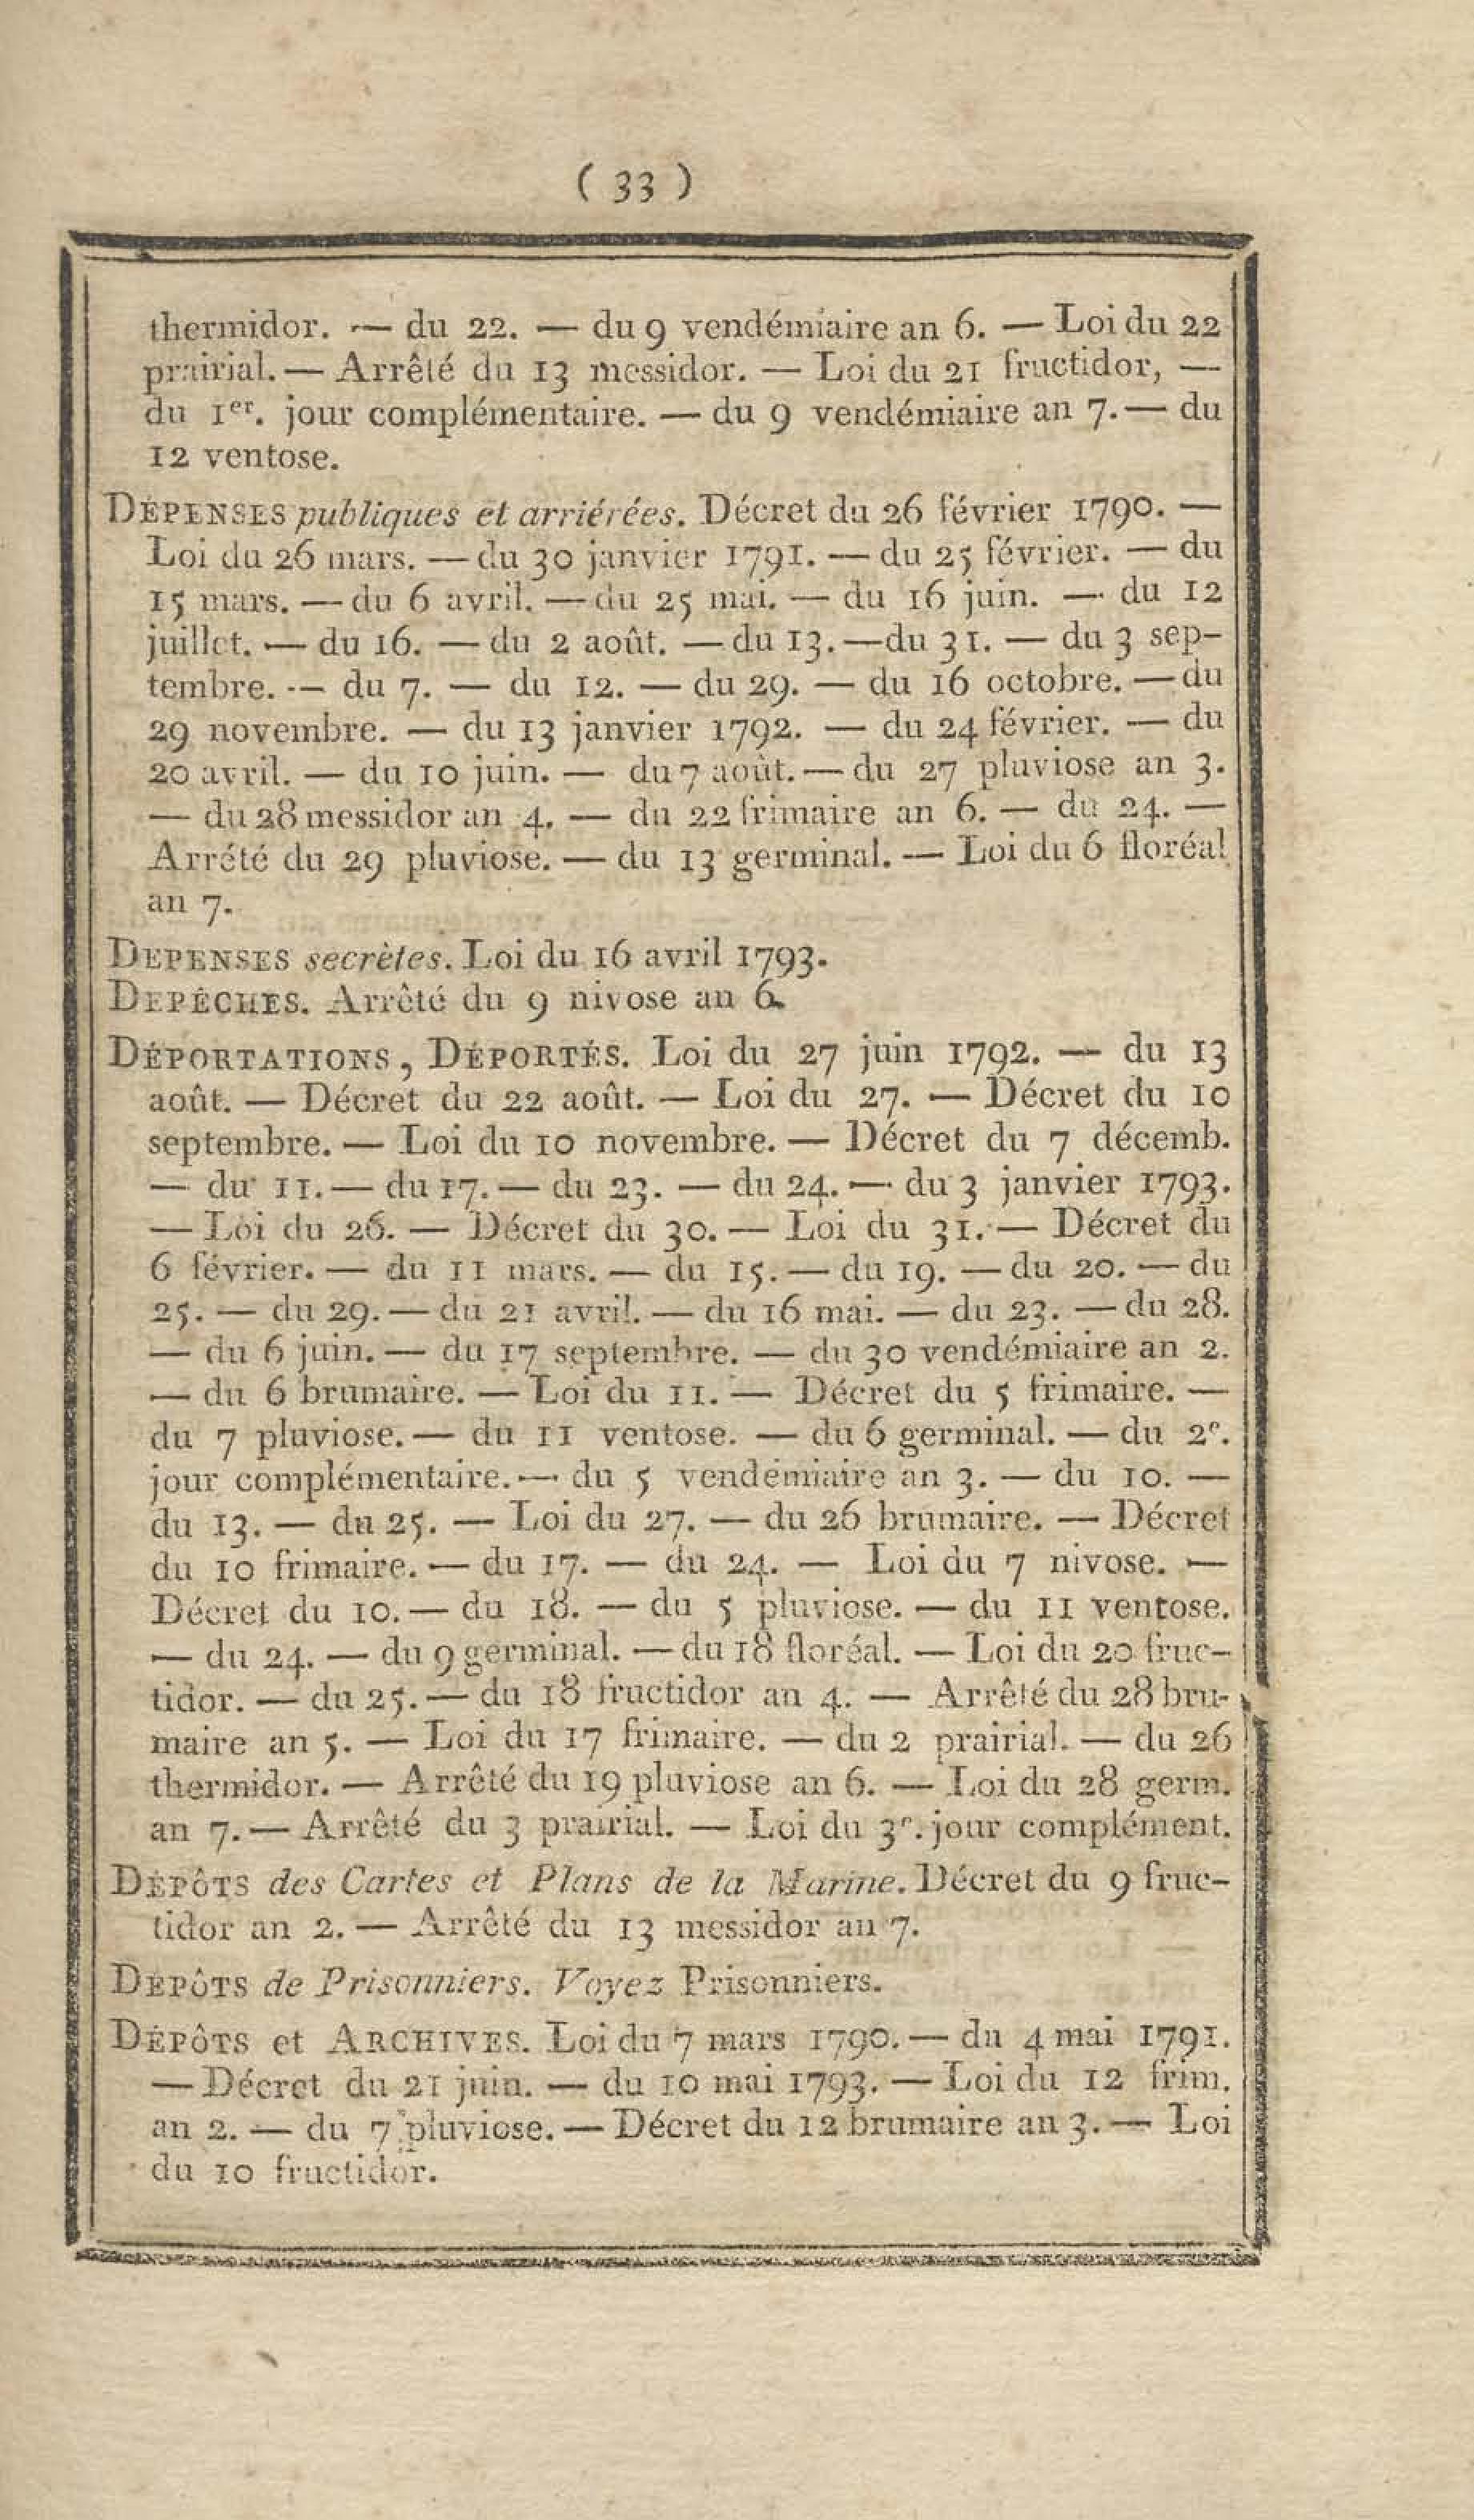 ( 33 )
thermidor. — du 22. — du 9 vendémiaire an 6. — Loi du 22
prairial. — Arrêté du 13 messidor. — Loi du 21 fructidor, —
du 1er. jour complémentaire. — du 9 vendémiaire an 7. — du
12 ventose.
DÉPENSES publiques et arriérées. Décret du 26 février 1790. —
Loi du 26 mars. — du 30 janvier 1791. — du 25 février. — du
15 mars. — du 6 avril. — du 25 mai. — du 16 juin. — du 12
juillet. — du 16. — du 2 août. — du 13. — du 31. — du 3 sep-
tembre. — du 7. — du 12. — du 29. — du 16 octobre. — du
29 novembre. — du 13 janvier 1792. — du 24 février. — du
20 avril. — du 10 juin. — du 7 août. — du 27 pluviose an 3.
— du 28 messidor an 4. — du 22 frimaire an 6. — du 24. —
Arrété du 29 pluviose. — du 13 germinal. — Loi du 6 floréal
an 7.
DEPENSES secrètes. Loi du 16 avril 1793.
DEPÊCHES. Arrêté du 9 nivose an 6.
DÉPORTATIONS, DÉPORTÉS. Loi du 27 juin 1792. — du 13
août. — Décret du 22 août. — Loi du 27. — Décret du 10
septembre. — Loi du 10 novembre. — Décret du 7 décemb.
— du 11. — du 17. — du 23. — du 24. — du 3 janvier 1793.
— Loi du 26. — Décret du 30. — Loi du 31. — Décret du
6 février. — du 11 mars. — du 15. — du 19. — du 20. — du
25. — du 29. — du 21 avril. — du 16 mai. — du 23. — du 28.
— du 6 juin. — du 17 septembre. — du 30 vendémiaire an 2.
— du 6 brumaire. — Loi du 11. — Décret du 5 frimaire. —
du 7 pluviose. — du 11 ventose. — du 6 germinal. — du 2e.
jour complémentaire. — du 5 vendémiaire an 3. — du 10. —
du 13. — du 25. — Loi du 27. — du 26 brumaire. — Décret
du 10 frimaire. — du 17. — du 24. — Loi du 7 nivose. —
Décret du 10. — du 18. — du 5 pluviose. — du 11 ventose.
— du 24. — du 9 germinal. — du 18 floréal. — Loi du 20 fruc-
tidor. — du 25. — du 18 fructidor an 4. — Arrêté du 28 bru-
maire an 5. — Loi du 17 frimaire. — du 2 prairial. — du 26
thermidor. — Arrêté du 19 pluviose an 6. — Loi du 28 germ.
an 7. — Arrêté du 3 prairial. — Loi du 3e. jour complément.
DÉPÔTS des Cartes et Plans de la Marine. Décret du 9 fruc-
tidor an 2. — Arrêté du 13 messidor an 7.
DÉPÔTS de Prisonniers. Voyez Prisonniers.
DÉPÔTS et ARCHIVES. Loi du 7 mars 1790. — du 4 mai 1791.
— Décret du 21 juin. — du 10 mai 1793. — Loi du 12 frim.
an 2. — du 7 pluviose. — Décret du 12 brumaire an 3. — Loi
du 10 fructidor.